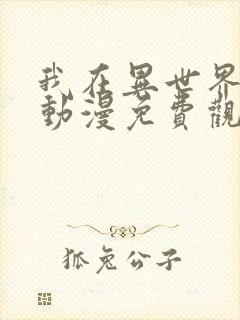 我在異世界
動漫免費觀
狐兔公子